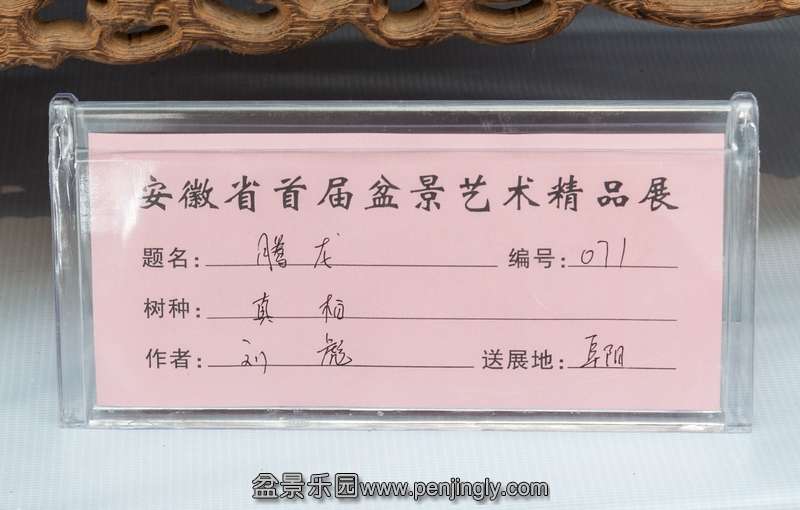 安徽省首届盆景艺术精品展
题名: 腾龙 编号: 071
树种: 真柏
作者: 刘彪 送展地: 阜阳
盆景乐园www.penjingly.com